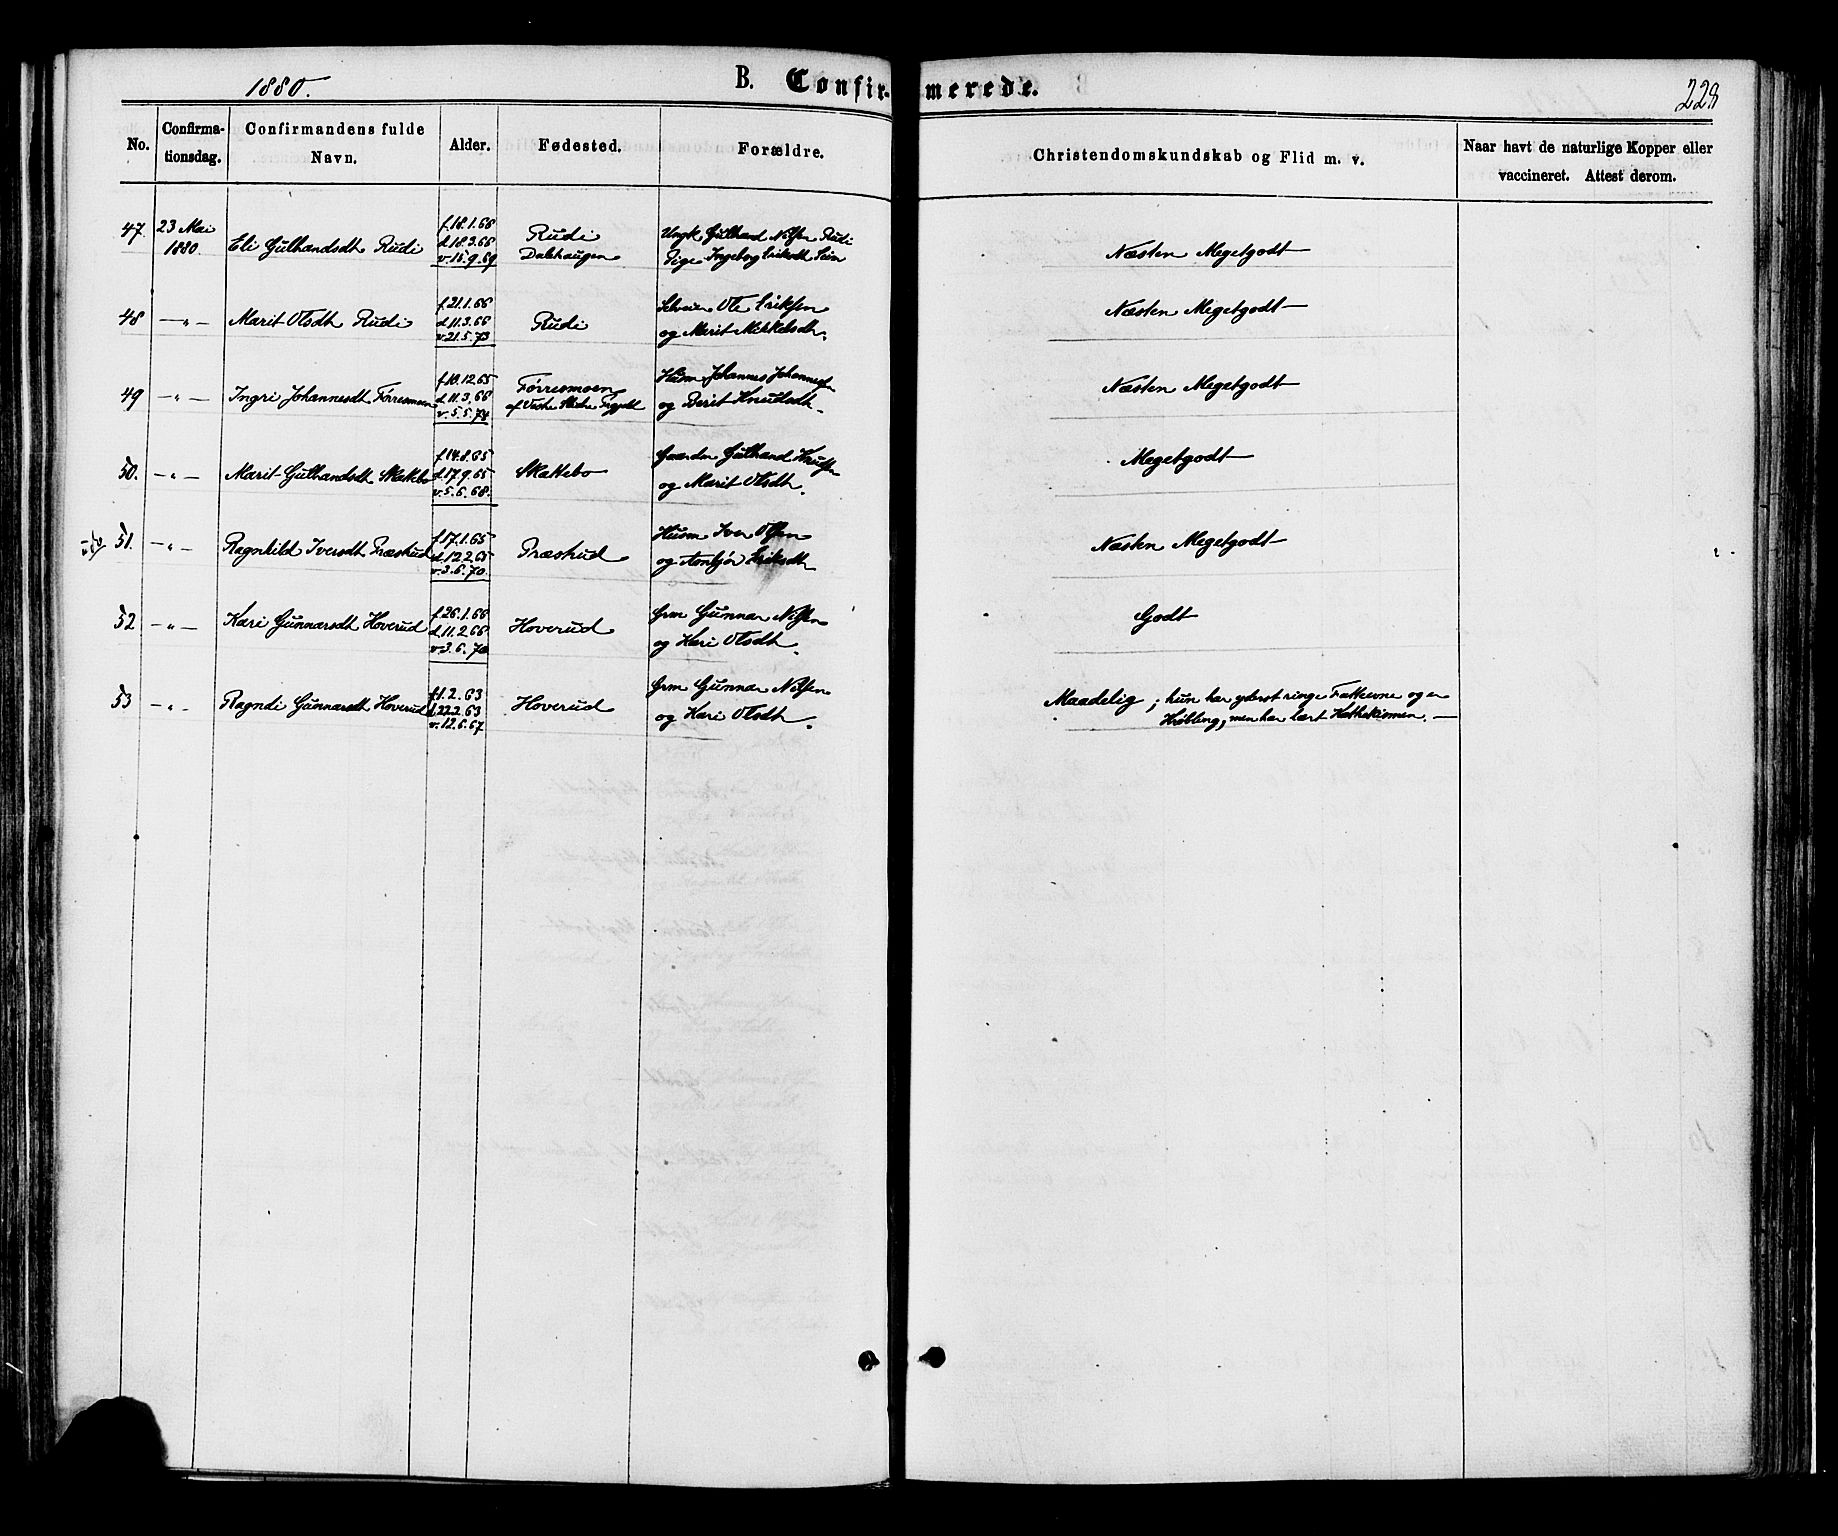 1880.
B. Confirmerede.
228
No.
Confirma-
tionsdag.
Confirmandens fulde
Navn.
Alder.
Fødested.
Forældre.
Christendomskundskab og Flid m. v.
Naar havt de naturlige Kopper eller
vaccineret. Attest derom.
47. 23 Mai 1880. Eli Gulbrandsdt Rudi
f. 16.1.66
d. 18.3.66
v. 15.9.69
Rudi
Dalshaugen
Ungk Gulbrand Nilsen Rudi
Pige Ingeborg Eriksdt
Næsten Megetgodt
48 —"— Marit Olsdt Rudi
f. 21.1.66
d. 11.3.66
v. 21.5.73
Rudi
Ole Eriksen
og Marit Mikkelsdt.
Næsten Megetgodt
49 —"— Ingri Johannesdt Førresmoen
f. 10.12.65
d. 11.3.66
v. 5.5.74
Førresmoen
af Slidre Prgjeld
Husm Johannes Johannesen
og Berit Knudsdt.
Næsten Megetgodt
50. —"— Marit Gulbrandsdt Skattebo
f. 14.8.65
d. 17.9.65
v. 5.6.68.
Skattebo
Gaardm Gulbrand Knutsen
og Marit Olsdt.
Megetgodt
51. —"— Ragnhild Iversdt Præstrud
f. 17.1.65
d. 12.2.65
v. 3.6.70.
Præstrud
Husm Iver Olsen
og Eriksdt
Næsten Megetgodt
52 —"— Kari Gunnarsdt Hoverud
f. 26.1.66
d. 11.2.66
v. 3.6.70
Hoverud
Grm Gunnar Nilsen
og Kari Olsdt.
Godt
53 —"— Ragndi Gunnarsdt Hoverud
f. 1.2.63
d. 22.2.63
v. 12.6.67
Hoverud
Grm Gunnar Nilsen
og Kari Olsdt.
Maadelig; hun har yderst ringe Fatteevne og er
Krøbling, men har lært Kathekismen. —